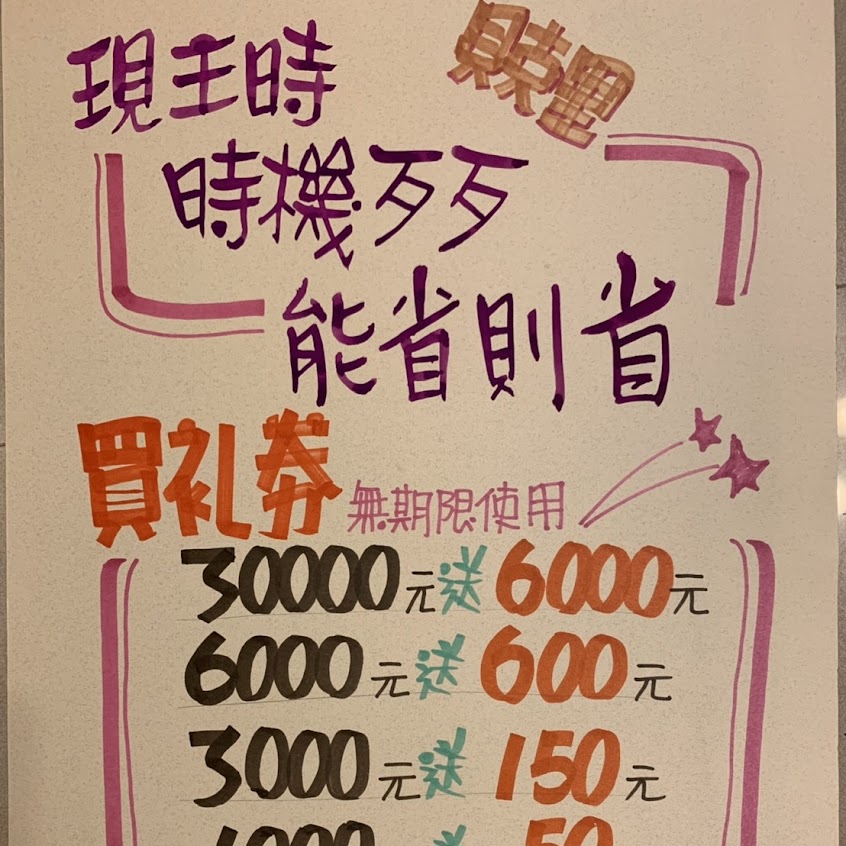 現主時
時機歹歹
能省則省
買礼券 無期限使用
30000元送6000元
6000元送600元
3000元送150元
1000 送 50